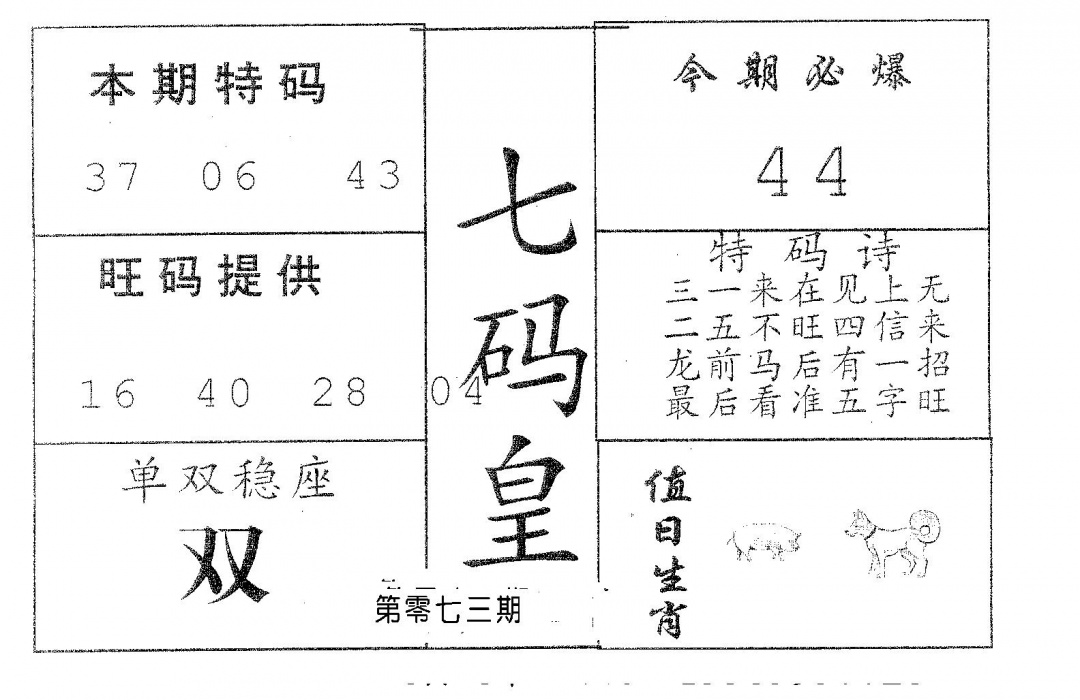 本期特码
37 06 43
旺码提供
16 40 28 04
单双稳座
双
七码皇
第零七三期
今期必爆
44
特码诗
三一来在见上无
二五不旺四信来
龙前马后有一招
最后看准五字旺
值日生肖